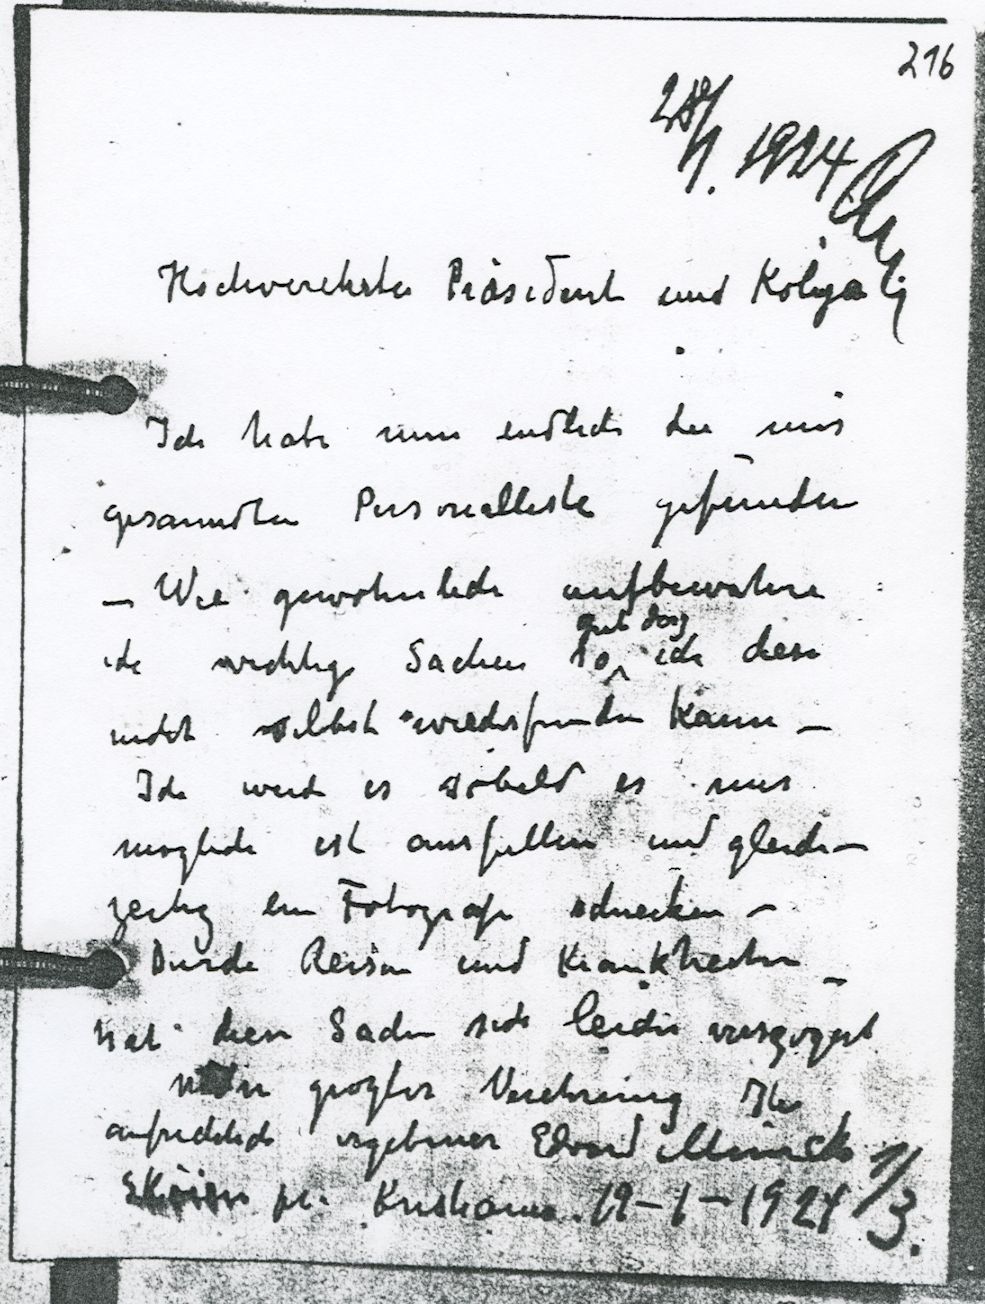 216
28/1. 1924
Hochverehrter Präsident und Kollega
Ich habe nun endlich die mir
gesandten Personalliste gefunden
– Wie gewöhnlich aufbewahre
ich wichtige Sachen so gut dasz ich diese
nicht selbst wiederfinden kann –
Ich werde es sobald es mir
möglich ist ausfüllen und gleich–
zeitig ein Fotografi schicken –
Durch Reisen und Krankheiten –
hat diese Sache sich leider verzögert
Mit groszter Verehrung Ihr
aufrichtich ergebener Edvard Munch
Sköien pr. Kristiania. 19–1–1924
1/3.